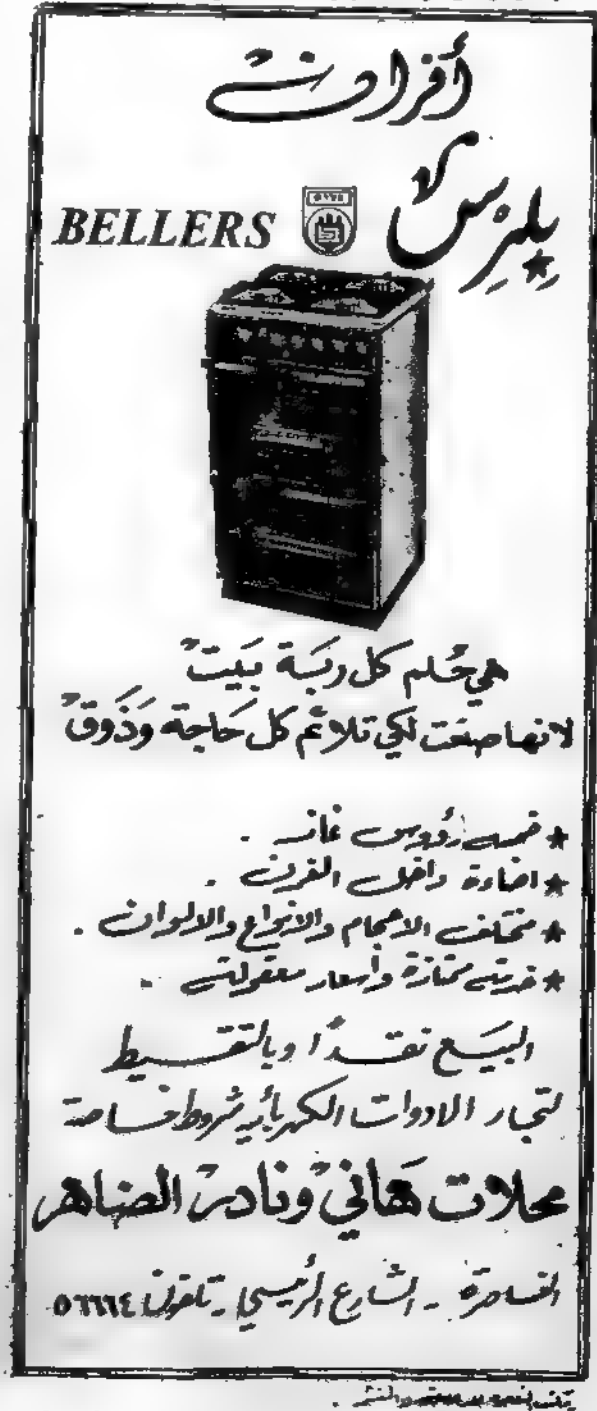 أفران
بلرس BELLERS
هي حُلم كل ربَّة بَيت
لانها صنعت لكي تلائم كل حَاجة وَذَوق
* خمسة رؤوس غاز .
* اضاءة داخل الفرن .
* مختلف الاحجام والانواع والالوان .
* خدمة ممتازة وأسعار معقولة .
البَيع نقداً وبالتقسيط
لتجار الادوات الكهربائية شروط خاصة
محلات هَاني ونادر الضاهر
الناصرة - الشارع الرئيسي - تلفون